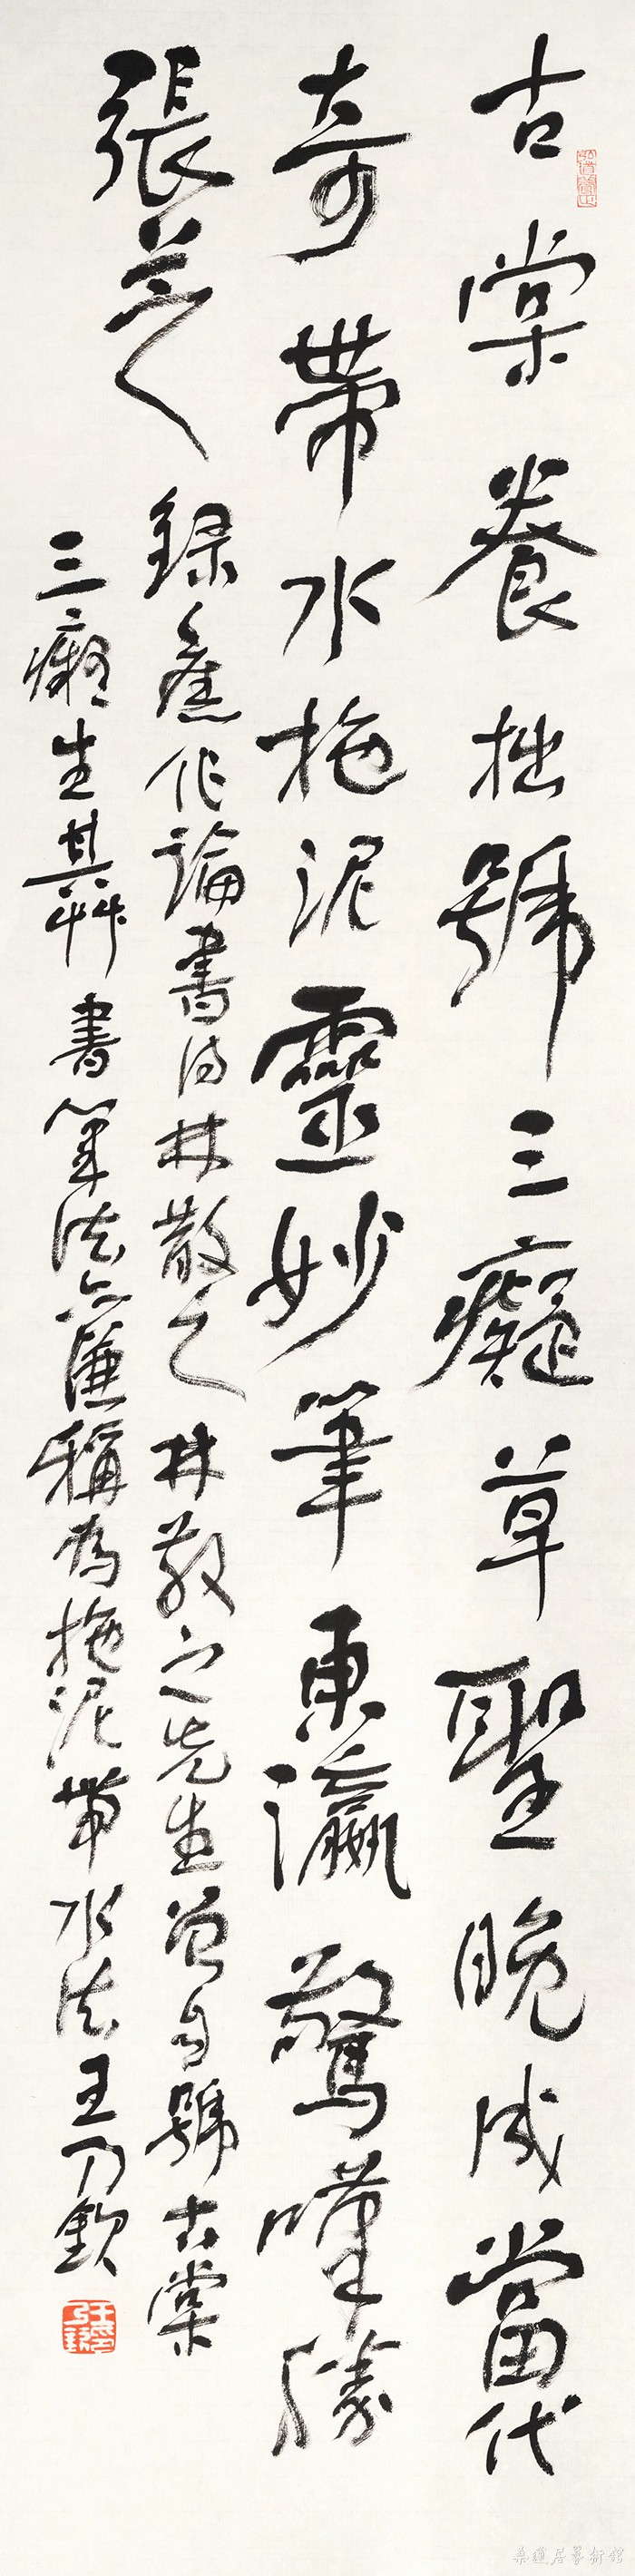 古棠養拙號三癡草聖晚成當代
奇帶水拖泥靈妙筆東瀛驚嘆勝
張芝
錄舊作論書詩林散之林散之先生曾自號古棠
三癡生其草書筆法亦謙稱為拖泥帶水法王乃欽